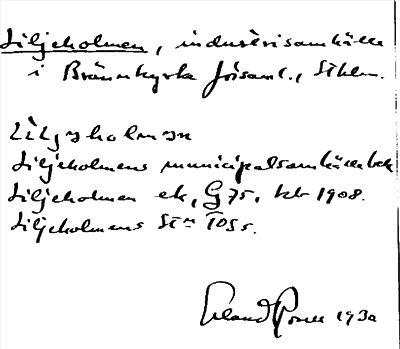 Liljeholmen, industrisamhälle
i Brännkyrka församl., Sthlm.
Liljeholmen
Liljeholmens municipalsamhälle
Liljeholmen ek, G 75, kb 1908.
Liljeholmens Stn TOSs.
Erland 1930